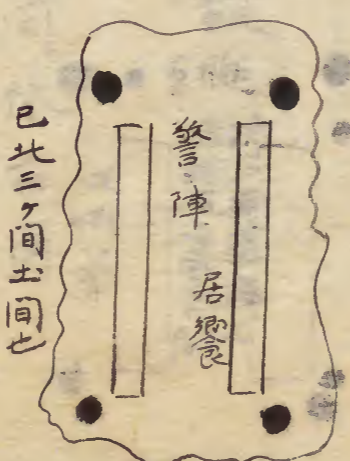 警陣
居饗
已北三ケ間土間也